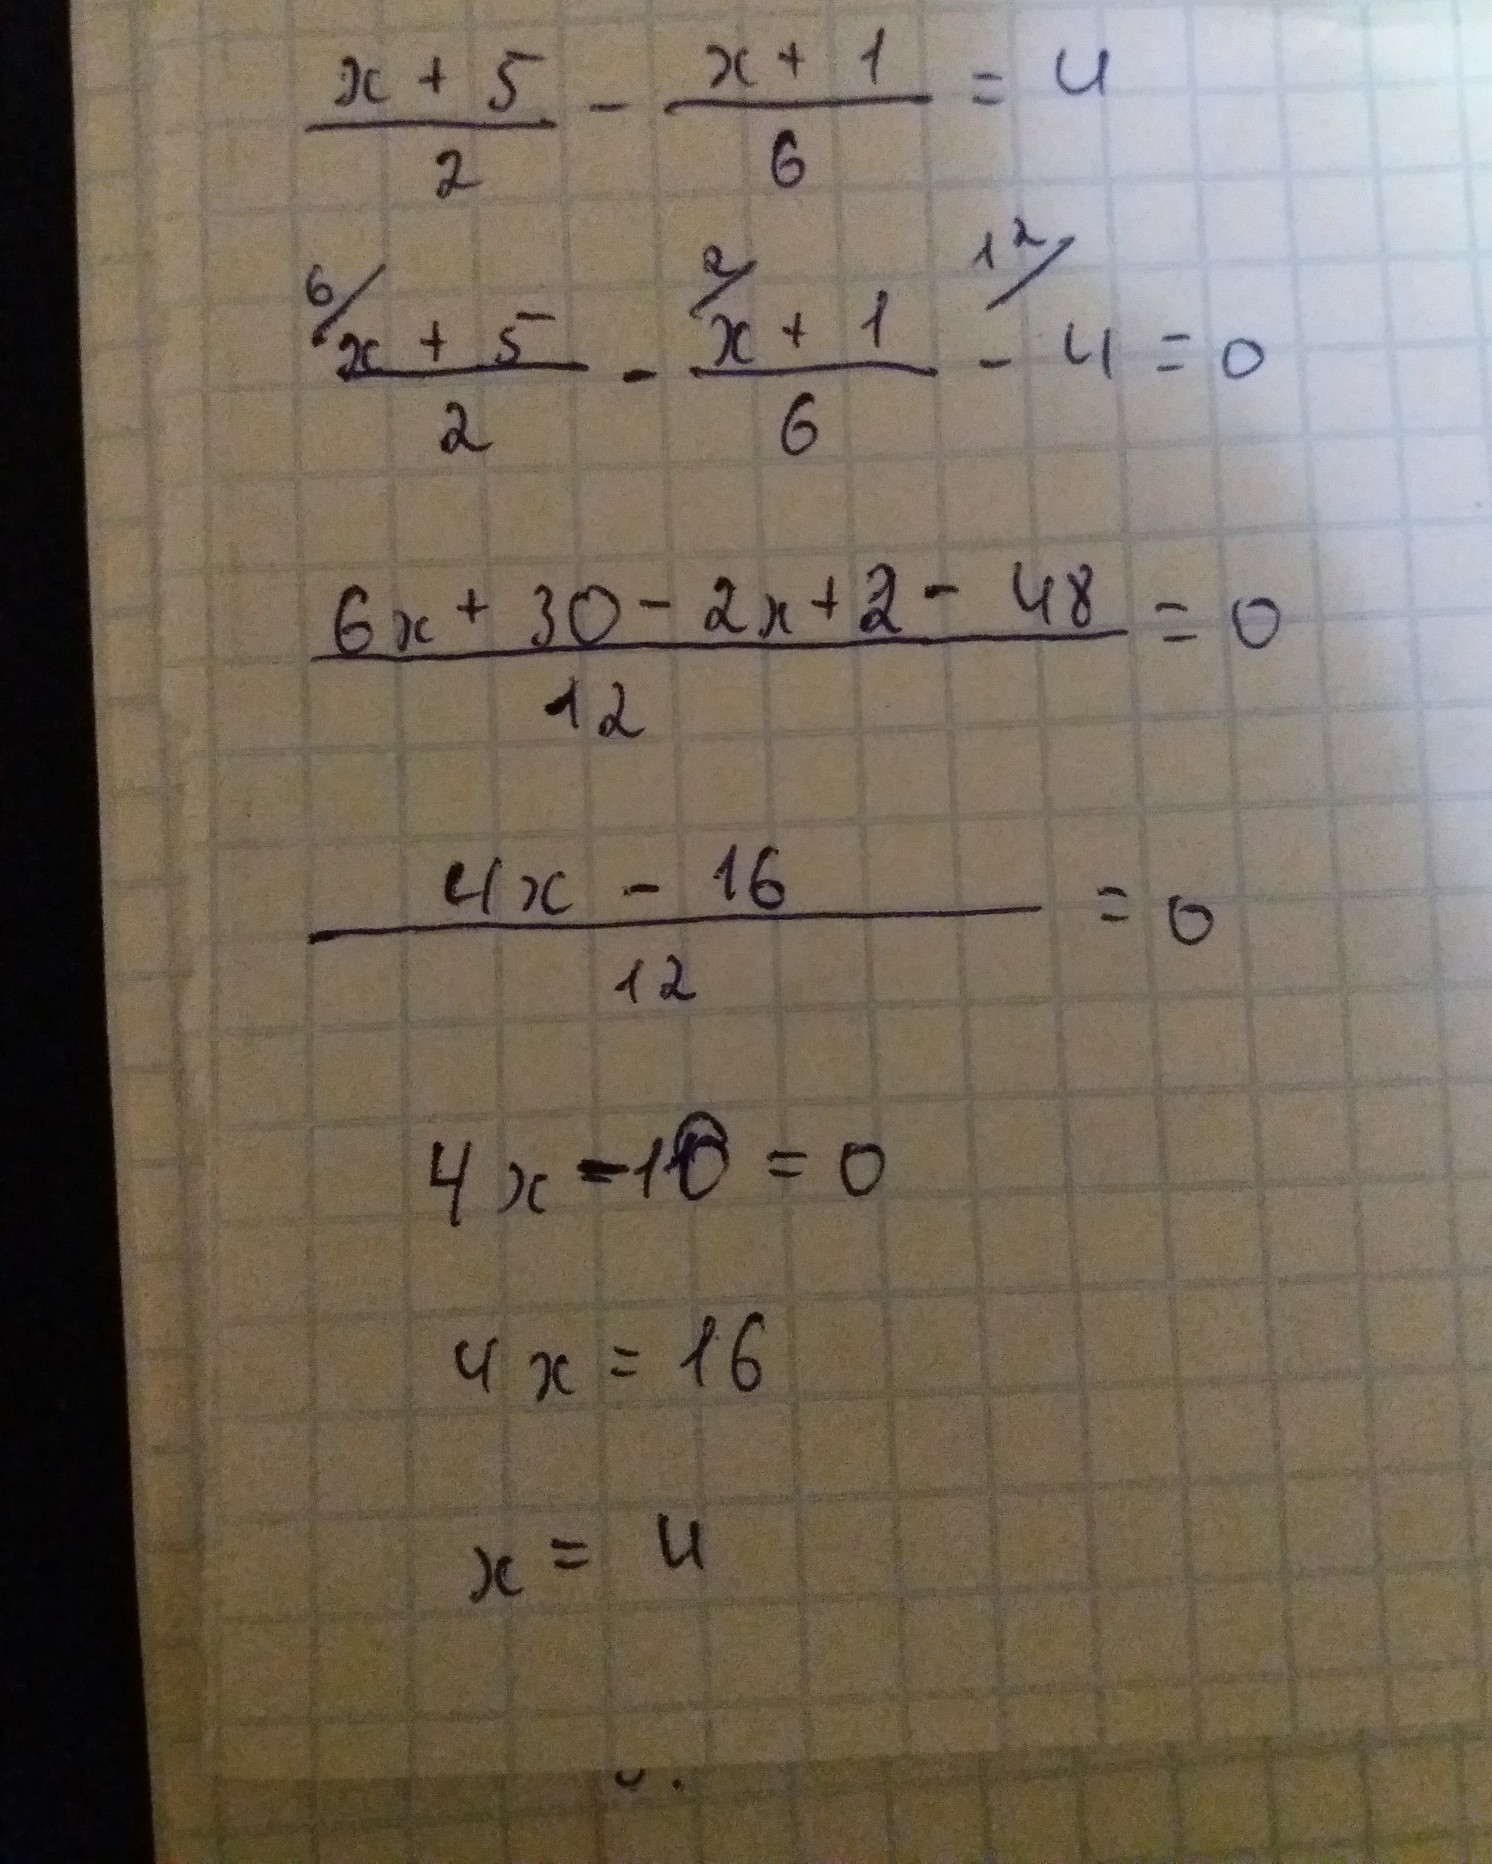 (x + 5)/2 - (x + 1)/6 = 4
6/ (x + 5)/2 - 2/ (x + 1)/6 - 12/ 4 = 0
(6x + 30 - 2x + 2 - 48)/12 = 0
(4x - 16)/12 = 0
4x - = 0
4x = 16
x = 4